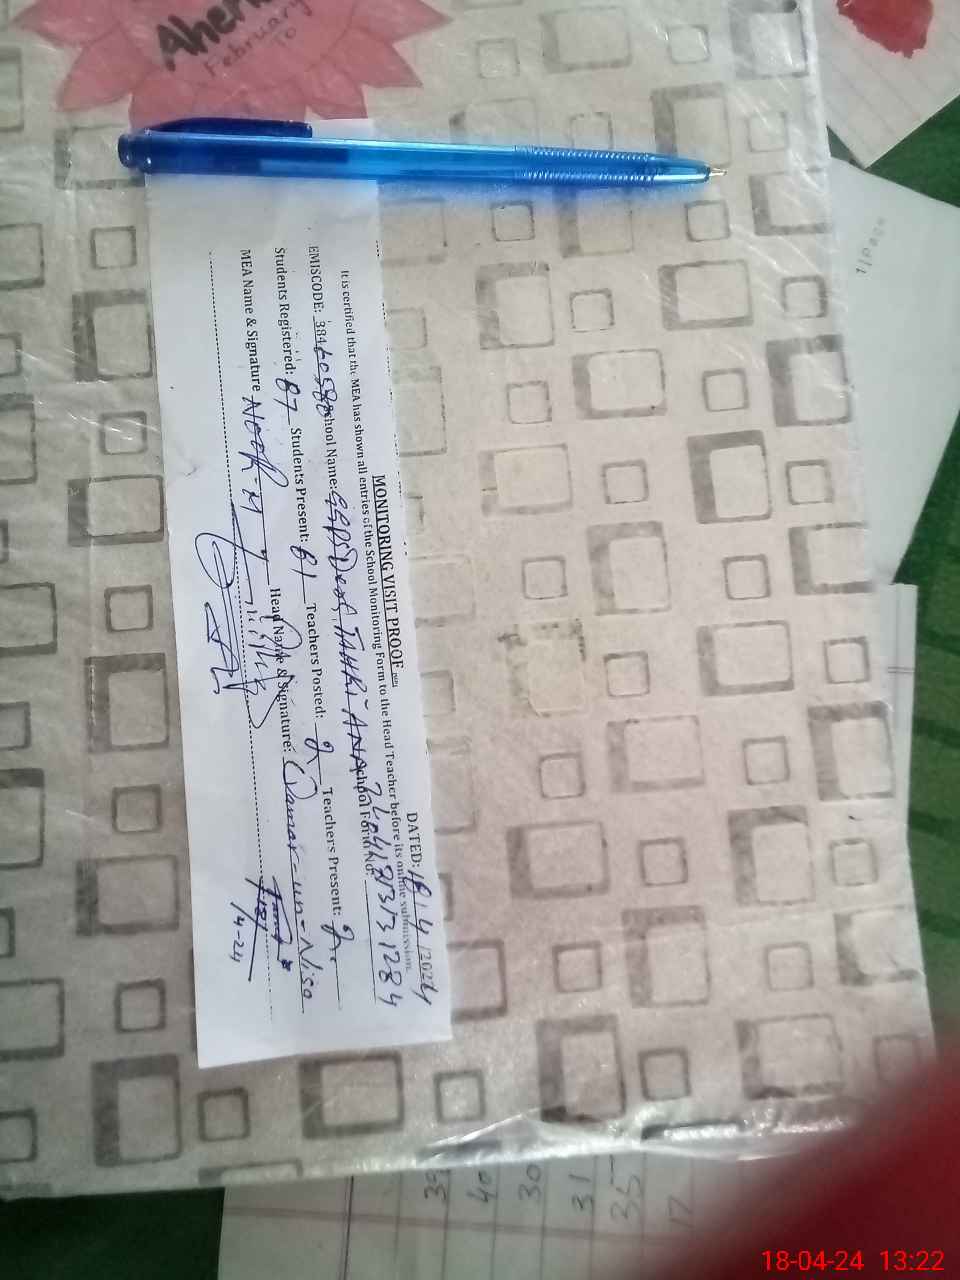 Ahe
February
10
MONITORING VISIT PROOF
DATED: 18/4/2024
It is certified that the MEA has shown all entries of the School Monitoring Form to the Head Teacher before its online submission.
EMISCODE: 384 School Name: GGPS School Form No.
Students Registered: 87 Students Present: 81 Teachers Posted: 2 Teachers Present: 2
MEA Name & Signature NOOR M Head Name & Signature: Qamar-un-Nisa
18/4-24
39
40
30
31
35
17
18-04-24 13:22